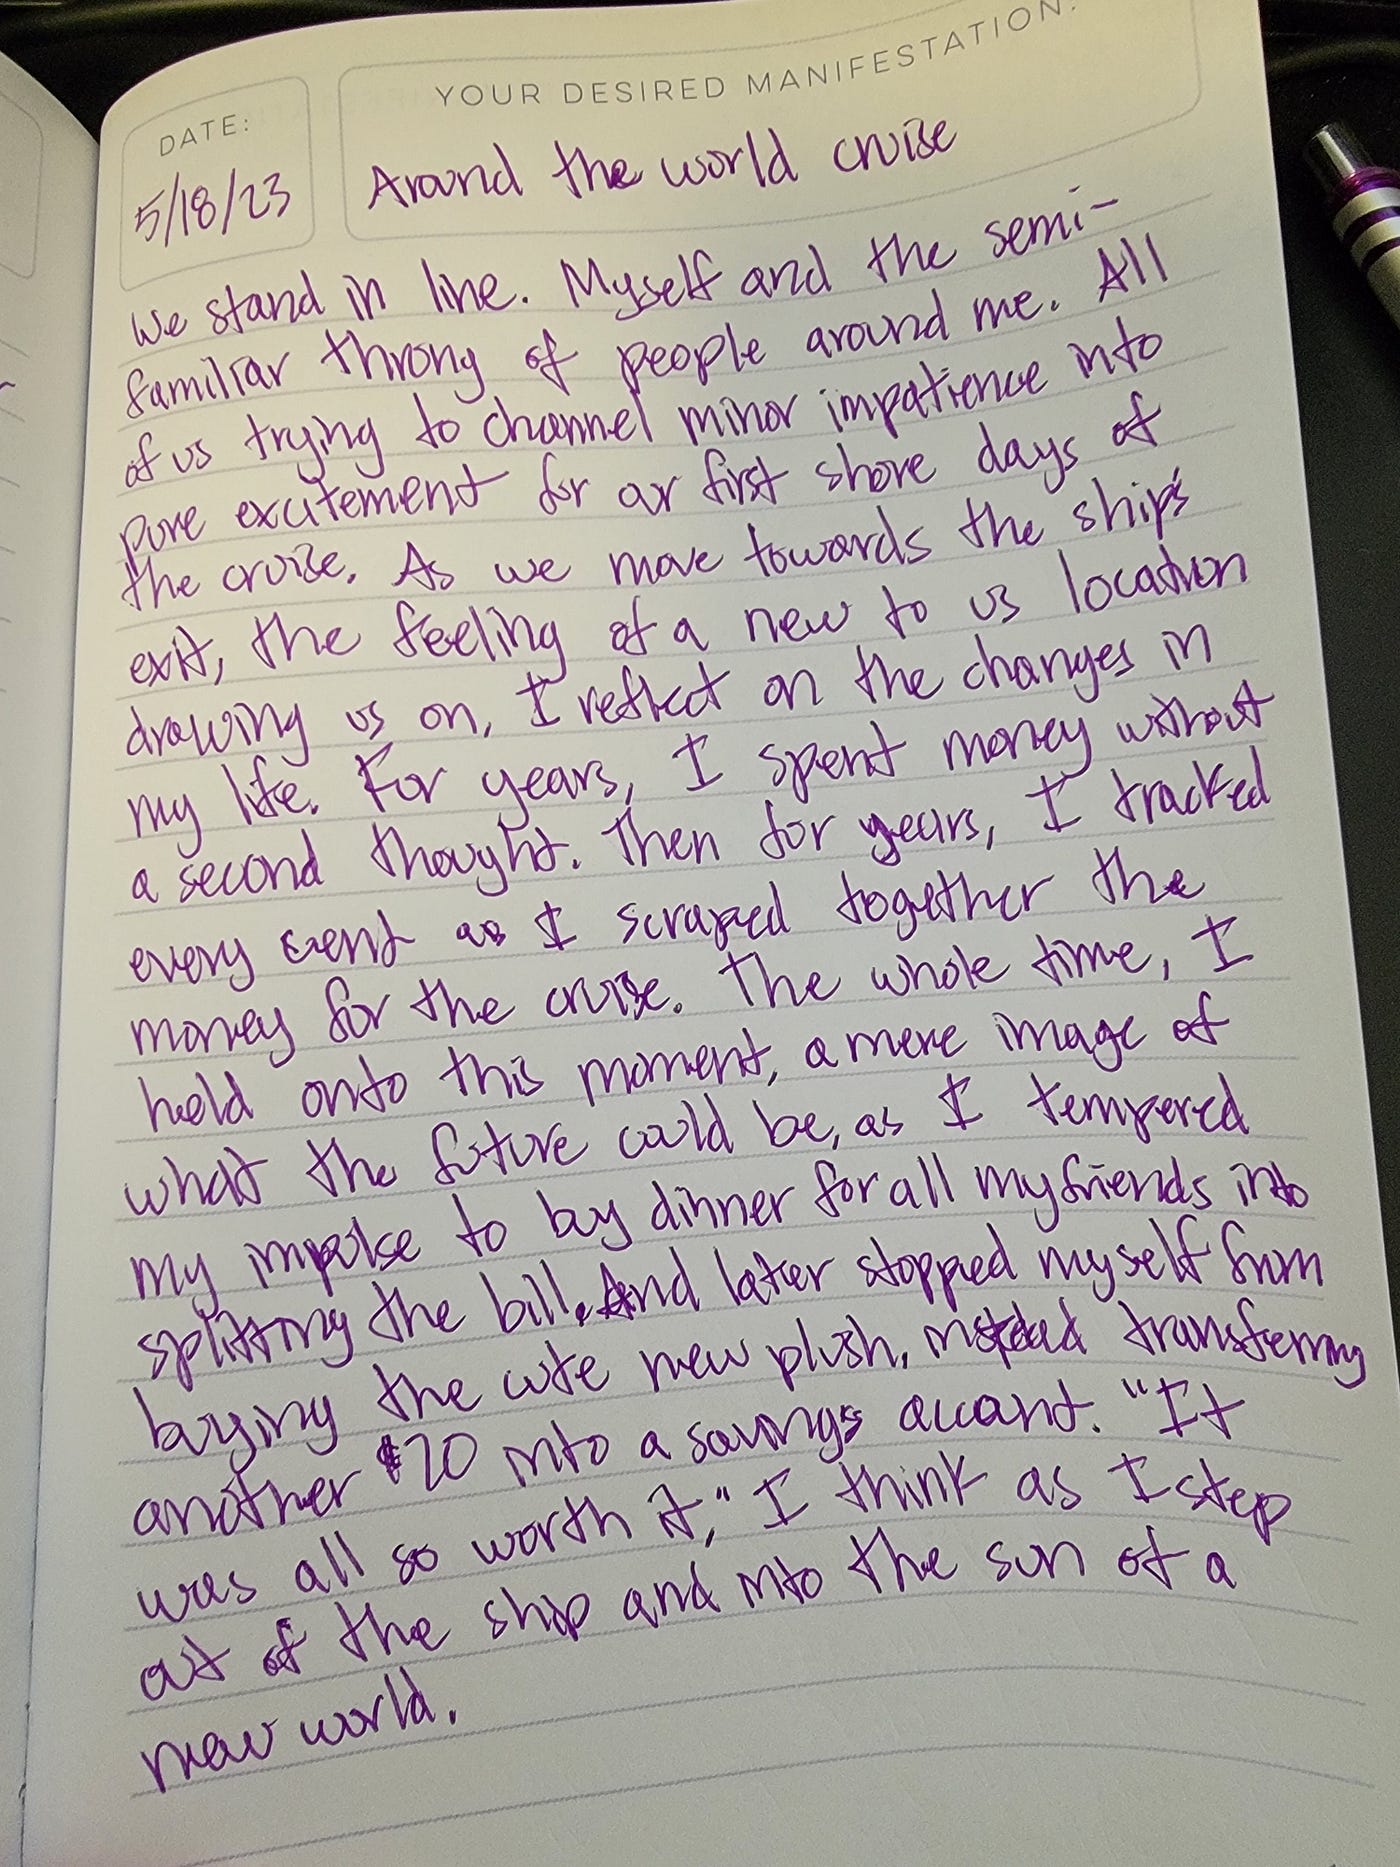 DATE:
YOUR DESIRED MANIFESTATION:
5/18/23
Around the world cruise
We stand in line. Myself and the semi-
familiar throng of people around me. All
of us trying to channel minor impatience into
pure excitement for our first shore days of
the cruise. As we move towards the ship's
exit, the feeling of a new to us location
drawing us on, I reflect on the changes in
my life. For years, I spent money without
a second thought. Then for years, I tracked
every cent as I scraped together the
money for the cruise. The whole time, I
held onto this moment, a mere image of
what the future could be, as I tempered
my impulse to buy dinner for all my friends into
splitting the bill. And later stopped myself from
buying the cute new plush, instead transferring
another $20 into a savings account. "It
was all so worth it," I think as I step
out of the ship and into the sun of a
new world.